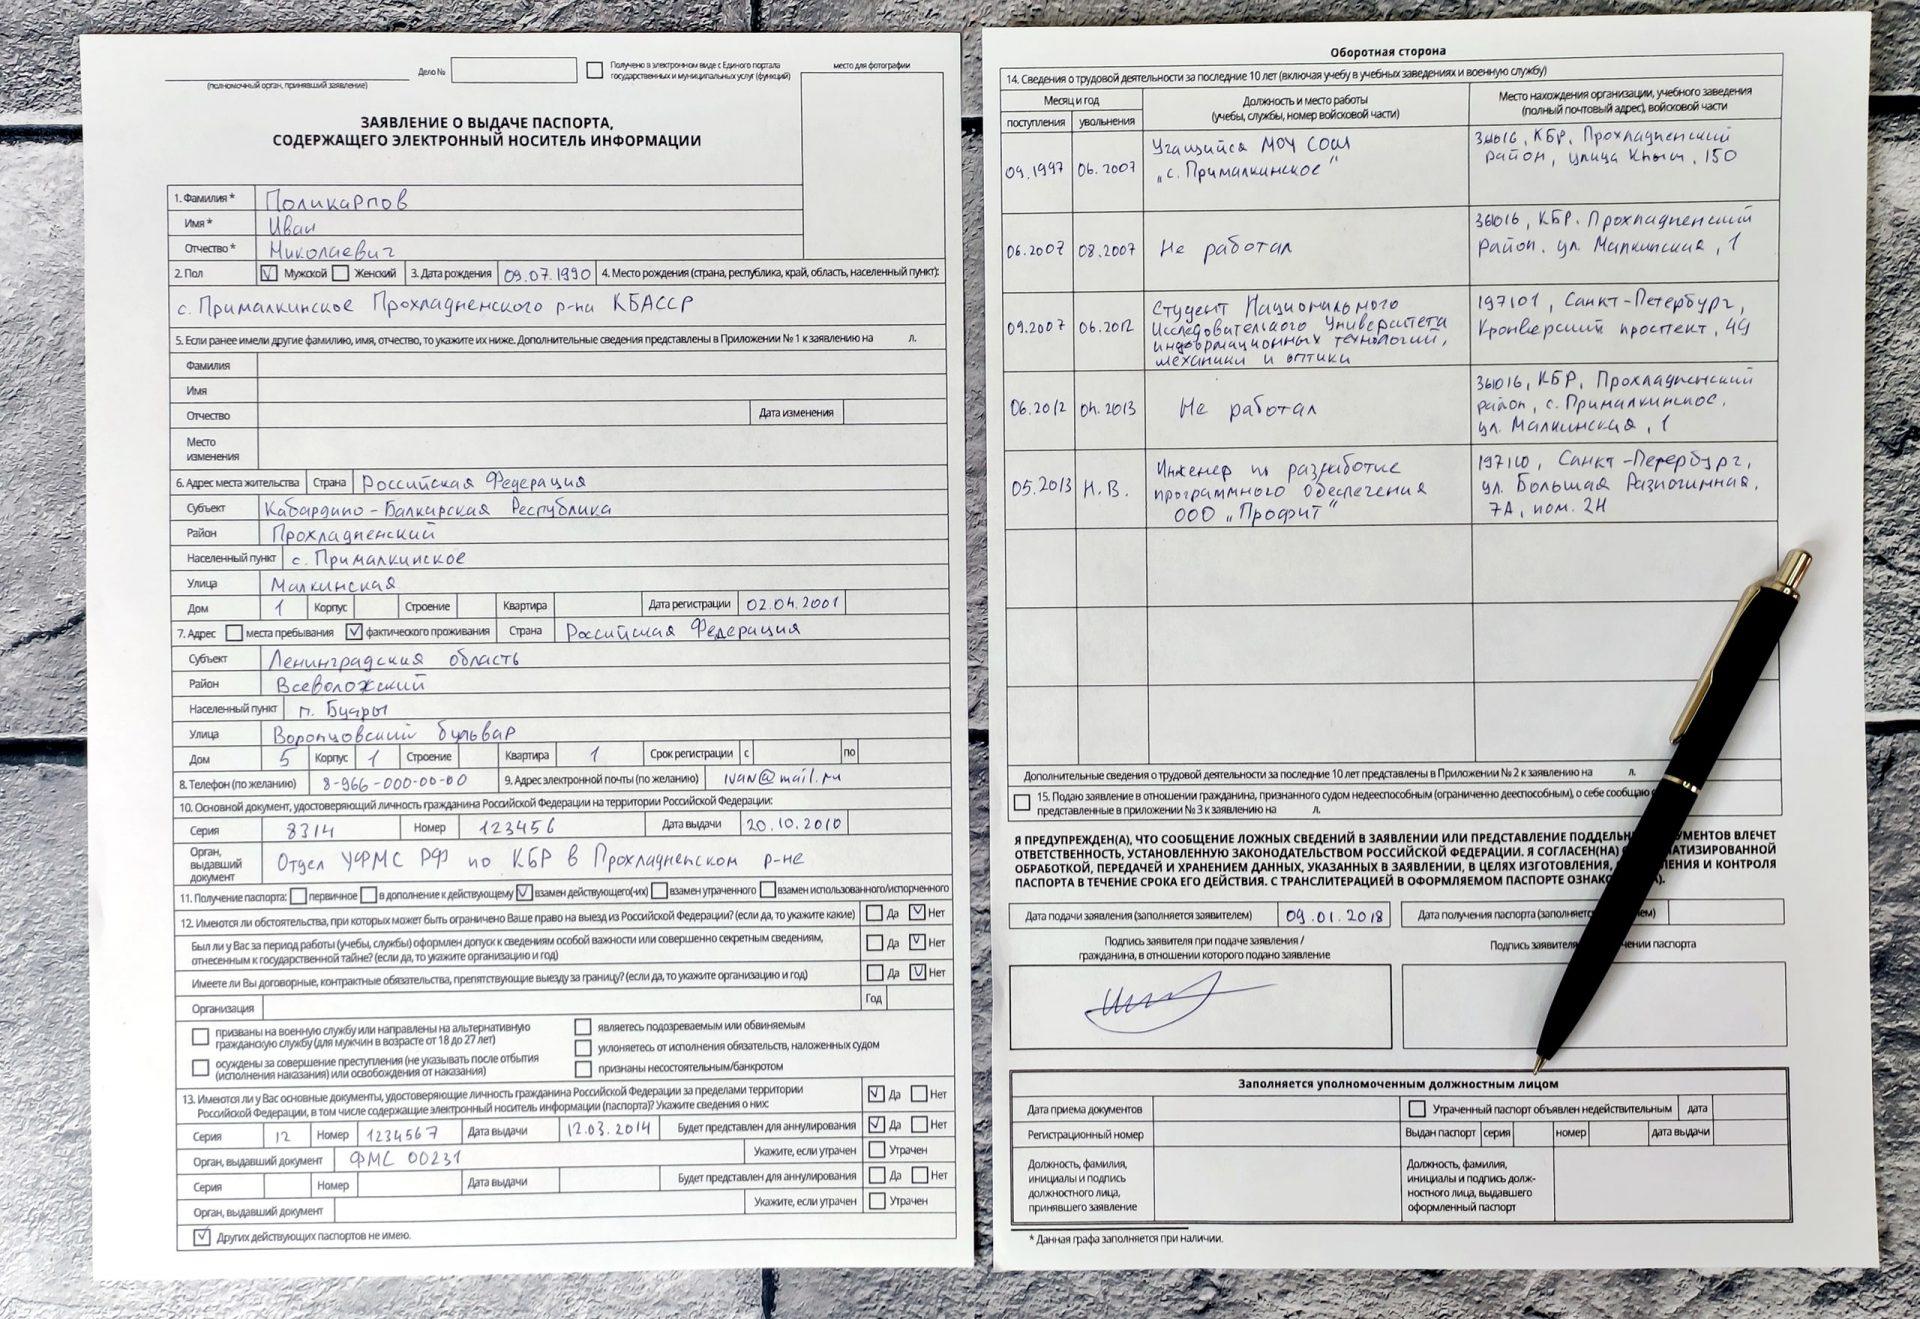 Дело №
Получено в электронном виде с Единого портала
государственных и муниципальных услуг (функций)
место для фотографии
(полномочный орган, принявший заявление)
ЗАЯВЛЕНИЕ О ВЫДАЧЕ ПАСПОРТА,
СОДЕРЖАЩЕГО ЭЛЕКТРОННЫЙ НОСИТЕЛЬ ИНФОРМАЦИИ
1. Фамилия * Поликарпов
Имя * Иван
Отчество * Николаевич
2. Пол Мужской Женский 3. Дата рождения 09.07.1990 4. Место рождения (страна, республика, край, область, населенный пункт):
с. Прималкинское Прохладненского р-на КБАССР
5. Если ранее имели другие фамилию, имя, отчество, то укажите их ниже. Дополнительные сведения представлены в Приложении № 1 к заявлению на л.
Фамилия
Имя
Отчество Дата изменения
Место
изменения
6. Адрес места жительства Страна Российская Федерация
Субъект Кабардино-Балкарская Республика
Район Прохладненский
Населенный пункт с. Прималкинское
Улица Малкинская
Дом 1 Корпус Строение Квартира Дата регистрации 02.04.2001
7. Адрес места пребывания фактического проживания Страна Российская Федерация
Субъект Ленинградская область
Район Всеволожский
Населенный пункт п. Бугры
Улица Воронцовский бульвар
Дом 5 Корпус 1 Строение Квартира 1 Срок регистрации с по
8. Телефон (по желанию) 8-966-000-00-00 9. Адрес электронной почты (по желанию) ivan@mail.ru
10. Основной документ, удостоверяющий личность гражданина Российской Федерации на территории Российской Федерации:
Серия 8314 Номер 123456 Дата выдачи 20.10.2010
Орган,
выдавший
документ Отдел УФМС РФ по КБР в Прохладненском р-не
11. Получение паспорта: первичное в дополнение к действующему взамен действующего(-их) взамен утраченного взамен использованного/испорченного
12. Имеются ли обстоятельства, при которых может быть ограничено Ваше право на выезд из Российской Федерации? (если да, то укажите какие) Да Нет
Был ли у Вас за период работы (учебы, службы) оформлен допуск к сведениям особой важности или совершенно секретным сведениям,
отнесенным к государственной тайне? (если да, то укажите организацию и год) Да Нет
Имеете ли Вы договорные, контрактные обязательства, препятствующие выезду за границу? (если да, то укажите организацию и год) Да Нет
Организация Год
призваны на военную службу или направлены на альтернативную
гражданскую службу (для мужчин в возрасте от 18 до 27 лет)
осуждены за совершение преступления (не указывать после отбытия
(исполнения наказания) или освобождения от наказания)
являетесь подозреваемым или обвиняемым
уклоняетесь от исполнения обязательств, наложенных судом
признаны несостоятельным/банкротом
13. Имеются ли у Вас основные документы, удостоверяющие личность гражданина Российской Федерации за пределами территории
Российской Федерации, в том числе содержащие электронный носитель информации (паспорта)? Укажите сведения о них: Да Нет
Серия 12 Номер 1234567 Дата выдачи 12.03.2014 Будет представлен для аннулирования Да Нет
Орган, выдавший документ ФМС 00231 Укажите, если утрачен Утрачен
Серия Номер Дата выдачи Будет представлен для аннулирования Да Нет
Орган, выдавший документ Укажите, если утрачен Утрачен
Других действующих паспортов не имею.
Оборотная сторона
14. Сведения о трудовой деятельности за последние 10 лет (включая учебу в учебных заведениях и военную службу)
Месяц и год
поступления увольнения
Должность и место работы
(учебы, службы, номер войсковой части)
Место нахождения организации, учебного заведения
(полный почтовый адрес), войсковой части
09.1997 06.2007
Учащийся МОУ СОШ
„с. Прималкинское"
361016, КБР, Прохладненский
район, улица Кныш, 150
06.2007 08.2007 Не работал
361016, КБР. Прохладненский
район. ул. Малкинская, 1
09.2007 06.2012
Студент Национального
Исследовательского Университета
информационных технологий,
механики и оптики
197101, Санкт-Петербург,
Кронверкский проспект, 49
06.2012 04.2013 Не работал
361016, КБР, Прохладненский
район, с. Прималкинское,
ул. Малкинская, 1
05.2013 Н.В.
Инженер по разработке
программного обеспечения
ООО „Профит"
197110, Санкт-Петербург,
ул. Большая Разночинная,
7А, пом. 2Н
Дополнительные сведения о трудовой деятельности за последние 10 лет представлены в Приложении № 2 к заявлению на л.
15. Подаю заявление в отношении гражданина, признанного судом недееспособным (ограниченно дееспособным), о себе сообщаю
представленные в приложении № 3 к заявлению на л.
Я ПРЕДУПРЕЖДЕН(А), ЧТО СООБЩЕНИЕ ЛОЖНЫХ СВЕДЕНИЙ В ЗАЯВЛЕНИИ ИЛИ ПРЕДСТАВЛЕНИЕ ВЛЕЧЕТ
ОТВЕТСТВЕННОСТЬ, УСТАНОВЛЕННУЮ ЗАКОНОДАТЕЛЬСТВОМ РОССИЙСКОЙ ФЕДЕРАЦИИ. Я СОГЛАСЕН(НА)
ОБРАБОТКОЙ, ПЕРЕДАЧЕЙ И ХРАНЕНИЕМ ДАННЫХ, УКАЗАННЫХ В ЗАЯВЛЕНИИ, В ЦЕЛЯХ ИЗГОТОВЛЕНИЯ, И КОНТРОЛЯ
ПАСПОРТА В ТЕЧЕНИЕ СРОКА ЕГО ДЕЙСТВИЯ. С ТРАНСЛИТЕРАЦИЕЙ В ОФОРМЛЯЕМОМ ПАСПОРТЕ
Дата подачи заявления (заполняется заявителем) 09.01.2018 Дата получения паспорта
Подпись заявителя при подаче заявления /
гражданина, в отношении которого подано заявление
Подпись паспорта
Заполняется уполномоченным должностным лицом
Дата приема документов Утраченный паспорт объявлен недействительным дата
Регистрационный номер Выдан паспорт серия номер дата выдачи
Должность, фамилия,
инициалы и подпись
должностного лица,
принявшего заявление
Должность, фамилия,
инициалы и подпись долж-
ностного лица, выдавшего
оформленный паспорт
* Данная графа заполняется при наличии.